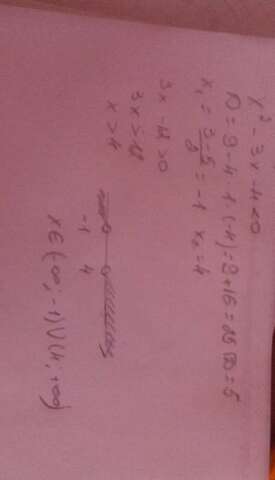 x² - 3x - 4 < 0
D = 9 - 4 · 1 · (-4) = 9 + 16 = 25 √D = 5
x₁ = (3-5)/2 = -1 x₂ = 4
3x - 12 > 0
3x > 12
x > 4
-1 4
x ∈ (-∞; -1) ∪ (4; +∞)